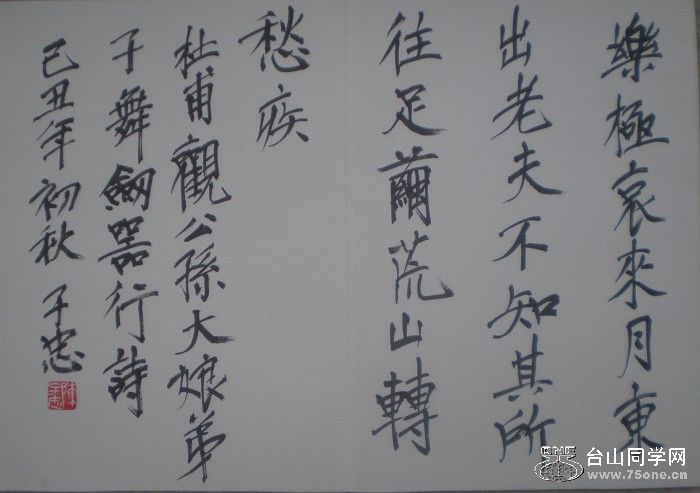 樂極哀來月東
出老夫不知其所
往足繭荒山轉
愁疾
杜甫觀公孫大娘弟
子舞劍器行詩
己丑年初秋 子忠
台山同学网
www.75one.cn